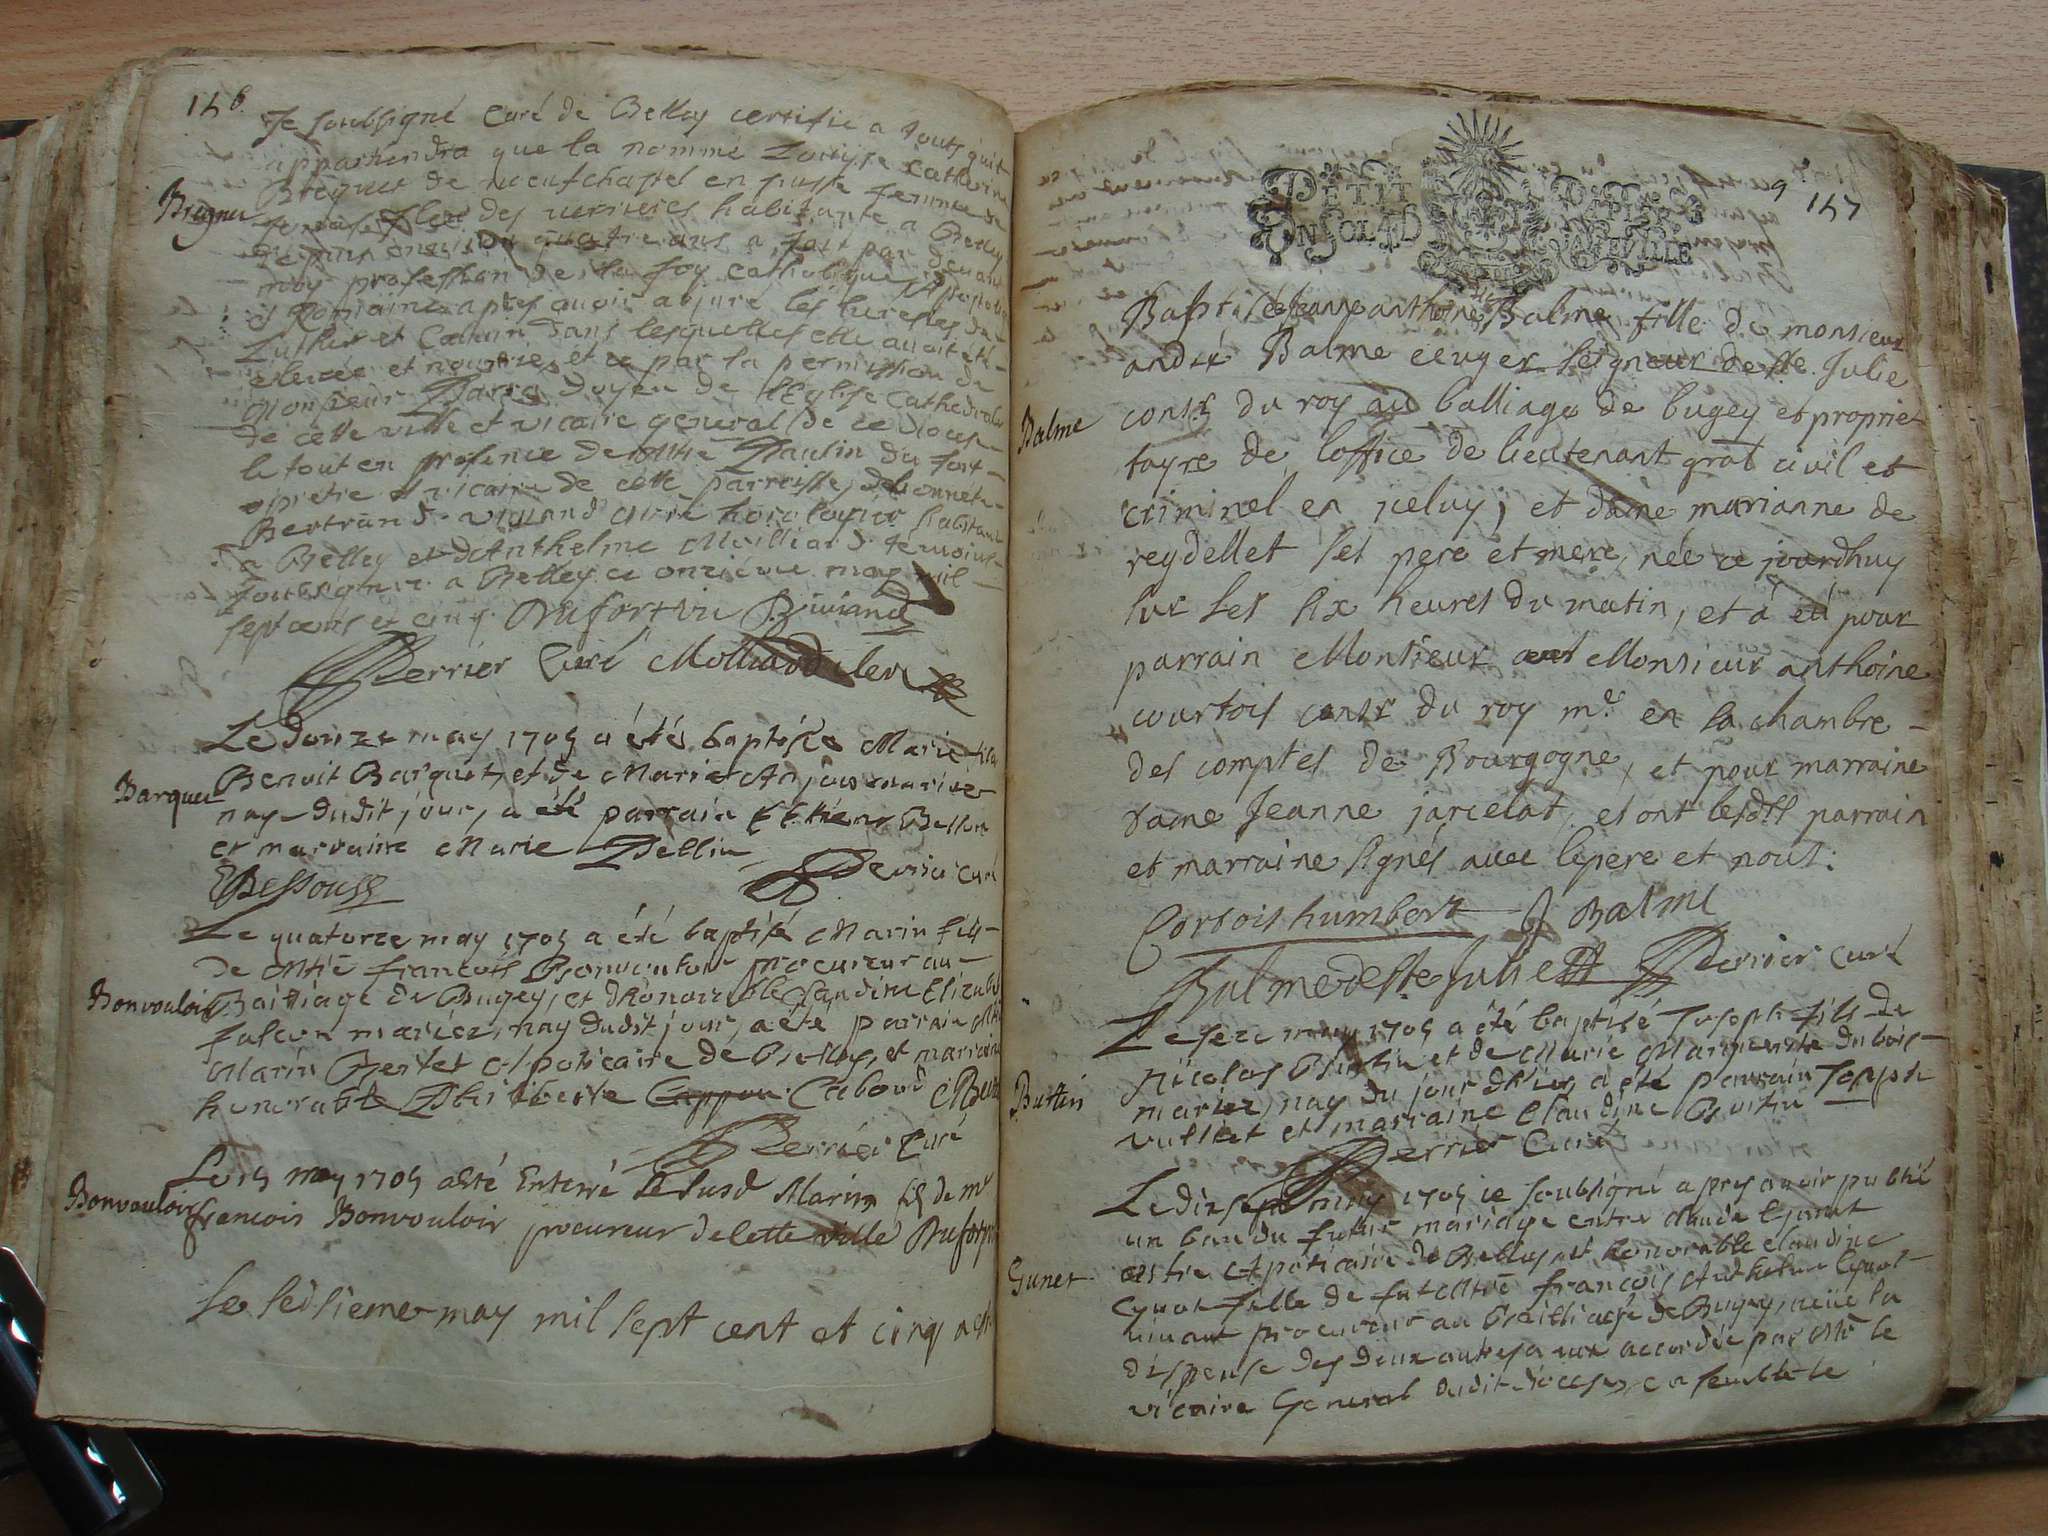 146.
Je soubsigné Curé de Belley certifie a touts qu'il
appartiendra que la nommé Louyse Catherine
Breguet de neufchastel en suisse femme de
Breguet
des verrieres habitante a Belley
depuis quatre ans a fait par devant
moy profession de la foy catholique apostolique
et Romaine apres avoir abjuré les heresies de
Luther et Calvin dans lesquelles elle avoit été
elevée et nourrie, et ce par la permission de
Monsieur doyen de l'Eglise Cathedrale
de cette ville et vicaire general de ce diocese
le tout en presence de Mre du fort
pretre et vicaire de cette parroisse, de honnete
Bertrand Viviand Mtre horologeur habitant
a Belley et d'Anthelme Molliard temoins
soubsignez a Belley ce onzieme may mil
sept cents et cinq Dufort vic Viviand
Perrier Curé Molliard
Le douze may 1705 a été baptisée Marie fille
Barquet
Benoit Barquet, et de Marie mariez
naye dudit jour, a été parrain Ettiene
et marraine Marie Bellin
Perrier curé
Le quatorze may 1705 a été baptisé Marin fils
de Mtre francois Bonvouloir procureur au
Bonvouloir
Bailliage de Bugey, et d'honorable Claudine
falcon mariez, nay dudit jour, a été parrain Mtre
Marin Bertet Apoticaire de Belley, et marraine
honorable Philiberte Caboud
Perrier Curé
Le 15 may 1705 a esté Enterré le susd Marin fils de mr
Bonvouloir
francois Bonvouloir procureur de cette ville Dufort
Le seisieme may mil sept cent et cinq a esté
PETIT PAPIER
UN SOL 4 D LA FEUILLE
9
147
Baptisée Jeanne anthoinette Balme fille de monsieur
andré Balme ecuyer seigneur de Ste Julie
Balme
consr du roy au balliage de bugey et propriet
tayre de l'office de lieutenant gnal civil et
criminel en iceluy; et dame marianne de
reydellet ses pere et mere, née ce jourdhuy
sur les six heures du matin, et a eu pour
parrain Monsieur Monsieur anthoine
courtois consr du roy me en la chambre
des comptes de Bourgogne, et pour marraine
dame Jeanne jarcelat, et ont lesdts parrain
et marraine signés avec le pere et nous.
Cortois humbert J Balme
Balme de Ste Julie Perrier curé
Le seze may 1705 a été baptisé Joseph fils de
Nicolas Buttin et de Marie Marguerite dubois
Buttin
mariez, nay du jour d'hier, a été parrain Joseph
vulliet et marraine Claudine Buttin
Perrier Curé
Le dixsept may 1705 je soubsigné apres avoir publié
un ban du futur mariage entre claude Gunet
Gunet
Mtre Apoticaire de Belley, et honorable claudine
fille de fut Mtre francois Anthelme
vivant procureur au Bailliage de Bugey, veüe la
dispense des deux autres a eux accordée par Mr le
vicaire General dudit diocese, ensemble le